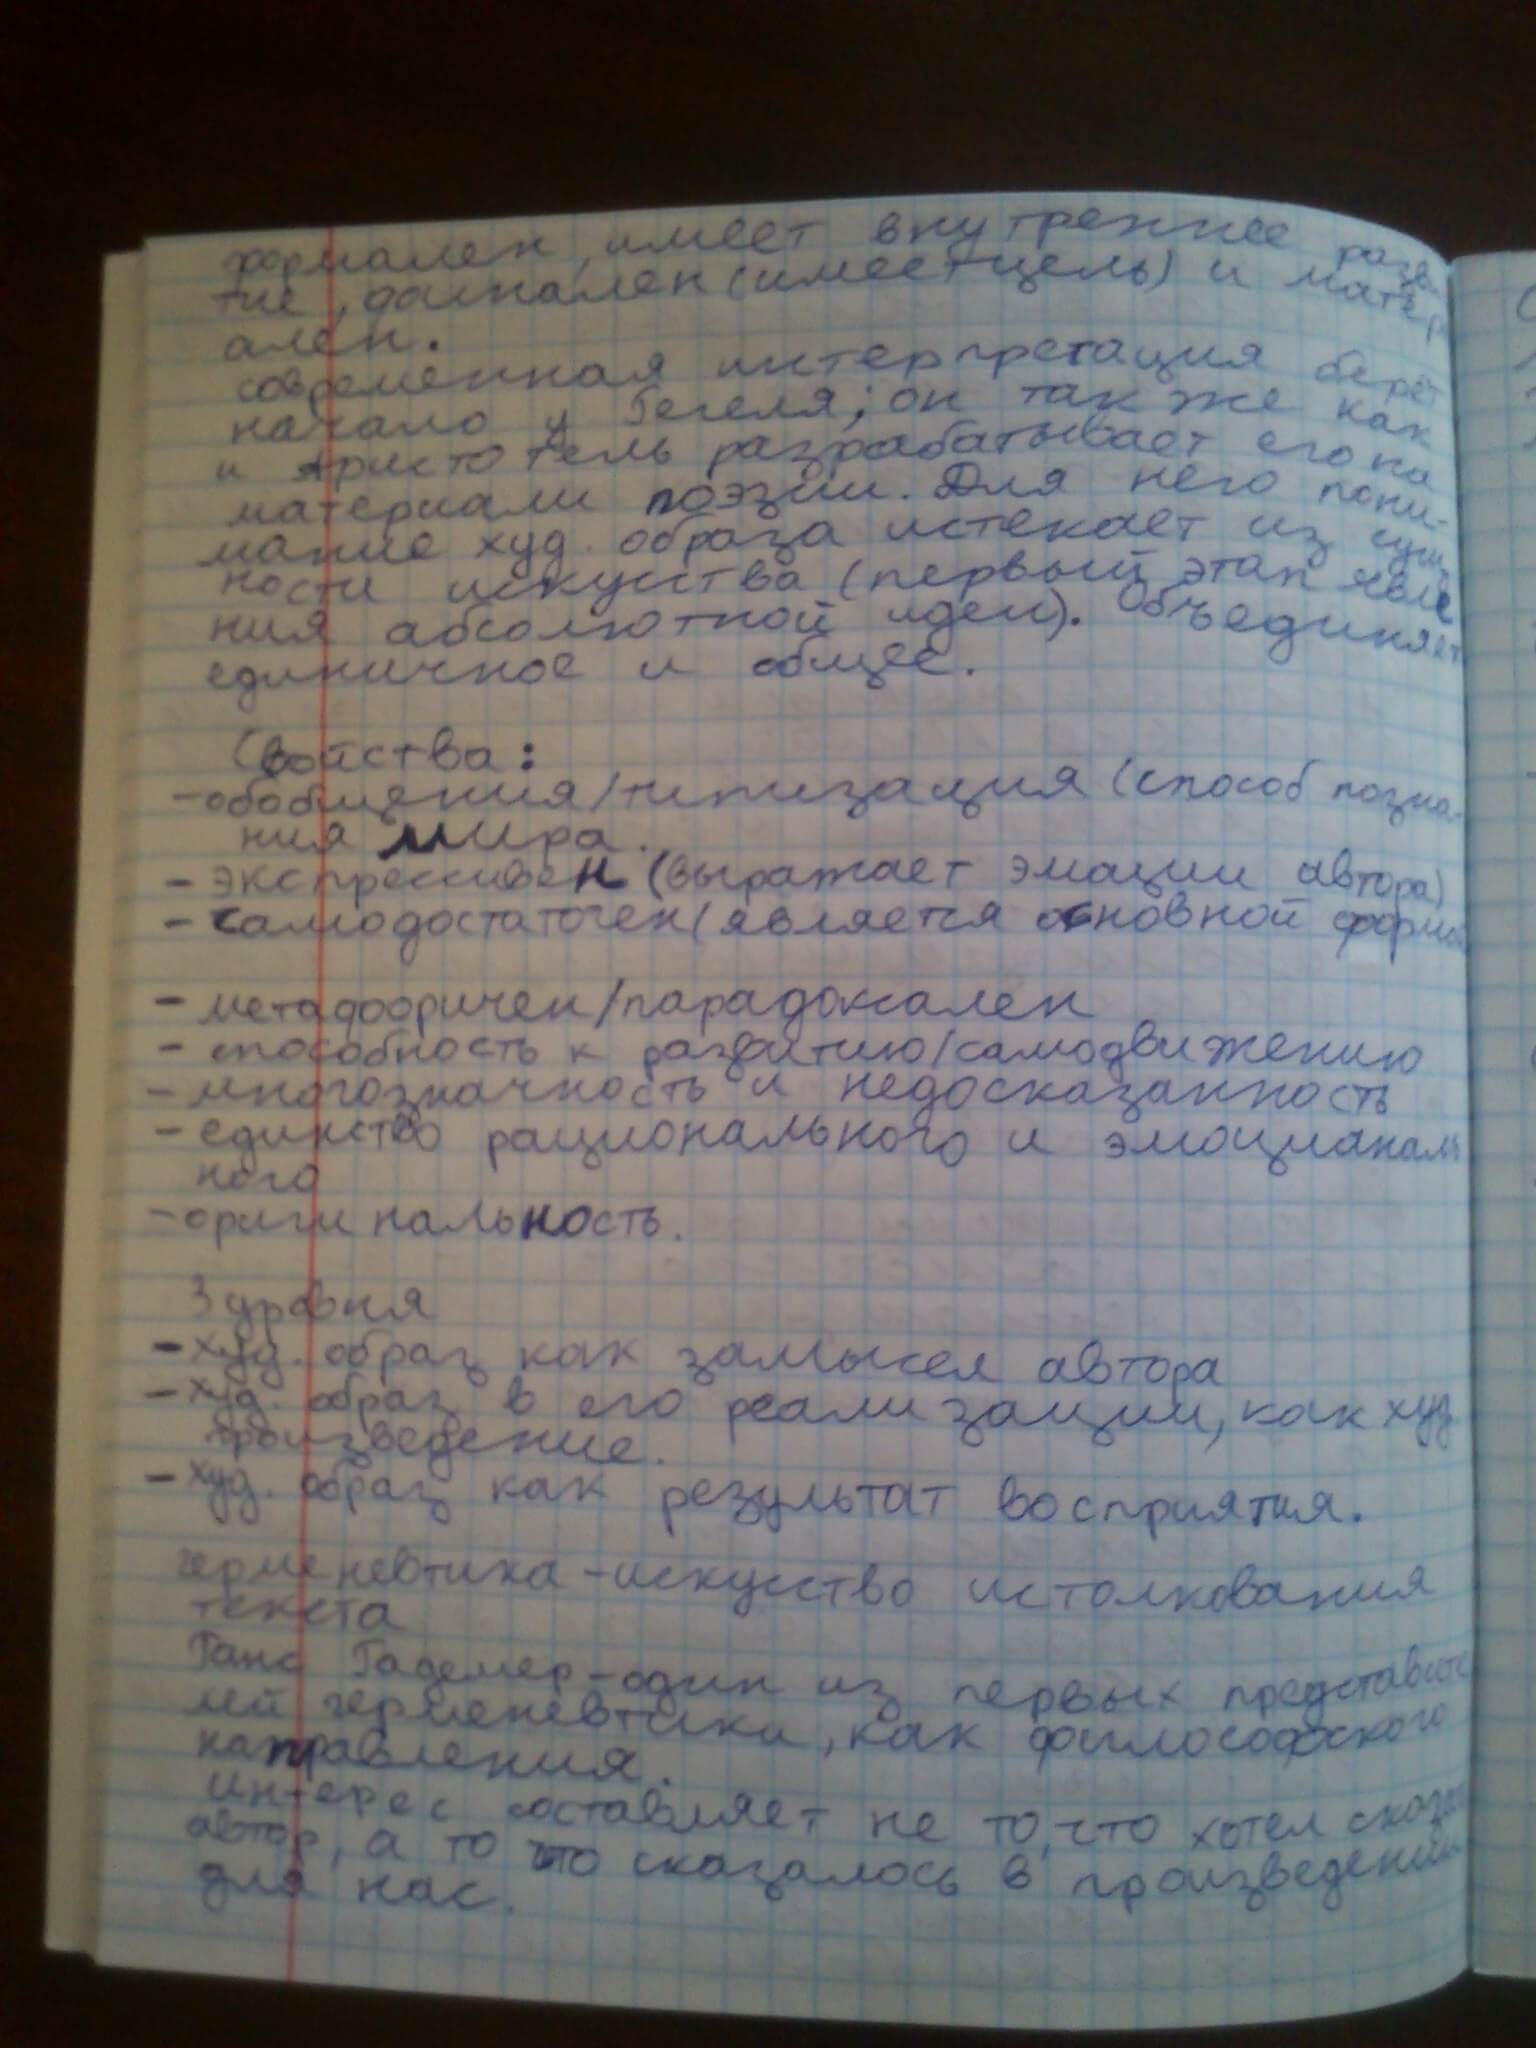 формален, имеет внутреннее разви-
тие, финален (имеет цель) и матери
ален.
современная интерпретация берёт
начало у Гегеля; он так же как
и Аристотель разрабатывает его на
материали поэзии. Для него пони-
мание худ. образа истекает из сущ
ности искусства (первый этап явле
ния абсолютной идеи). Объединяет
единичное и общее.
Свойства:
-обобщения/типизация (способ позна-
ния мира.
- экспрессивен (выражает эмации автора)
- самодостаточен (является основной формой
- метафоричен/парадоксален
- способность к развитию/самодвижению
- многозначность и недосказанность
- единство рационального и эмоцианаль
ного
-оригинальность.
3 уровня
- худ. образ как замысел автора
- худ. образ в его реализации, как худ
произведение.
- худ. образ как результат восприятия.
герменевтика - искусство истолкования
текста
Ганс Гадемер - один из первых представите
лей герменевтики, как философского
направления.
интерес составляет не то, что хотел сказать
автор, а то что сказалось в произведении
для нас.